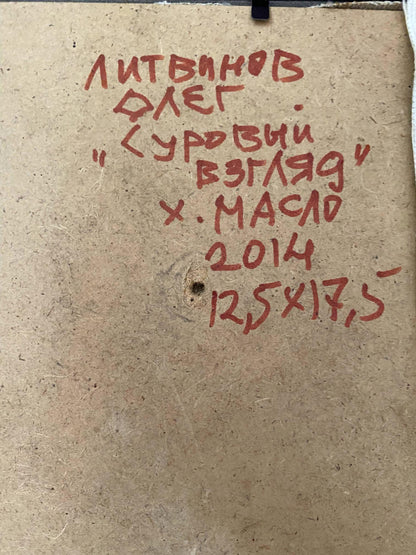 ЛИТВИНОВ
ОЛЕГ.
"Суровый
ВЗГЛЯД"
Х. МАСЛО
2014
12,5х17,5